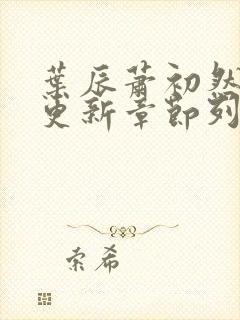 葉辰蕭初然
更新章節列
索希